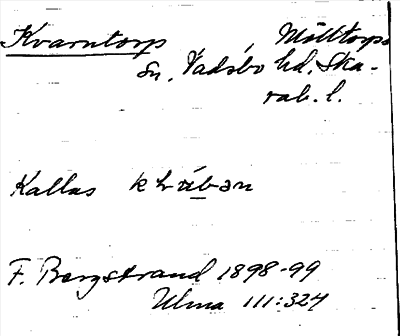 Kvarntorp Mölltorps
sn, Vadsbo hd, Ska-
rab. l.
Kallas
F. Bergstrand 1898-99
Ulma 111:324